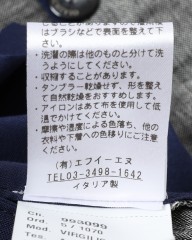 はブラシなどで表面を整えて下
さい。
・洗濯の際は他のものと分けて洗
うようにしてください。
・収縮することがあります。
・タンブラー乾燥せず、形を整え
て自然乾燥をおすすめします。
・アイロンはあて布を使用して低
温でかけてください。
・摩擦や湿度による色落ち、他の
衣料や下着への色移りにご注意
ください。
(有)エフイーエヌ
TEL03-3498-1642
イタリア製
Ch. 993099
Ord. 57 1070
Mod. VIRGIL